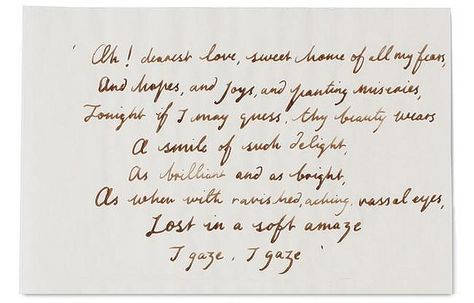 ' Ah! dearest love, sweet home of all my fears,
And hopes, and joys, and panting miseries,
Tonight if I may guess, thy beauty wears
A smile of such delight,
As brilliant and as bright,
As when with ravished, aching, vassal eyes,
Lost in a soft amaze
I gaze, I gaze '